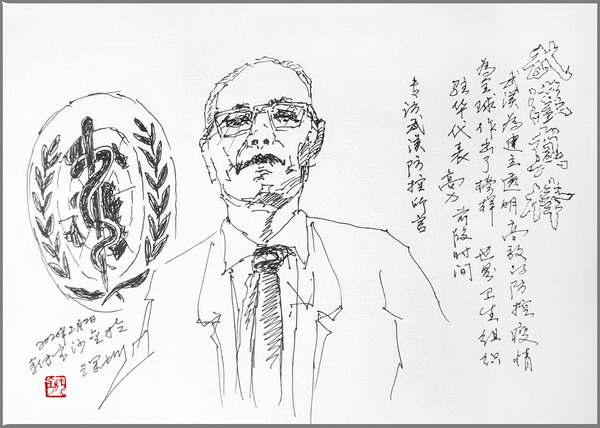 武汉为建立透明高效的防控疫情
為全球作出了榜样 世界卫生组织
驻华代表 高力 前段时间
专访武汉防控所言
2020年2月2日
深圳